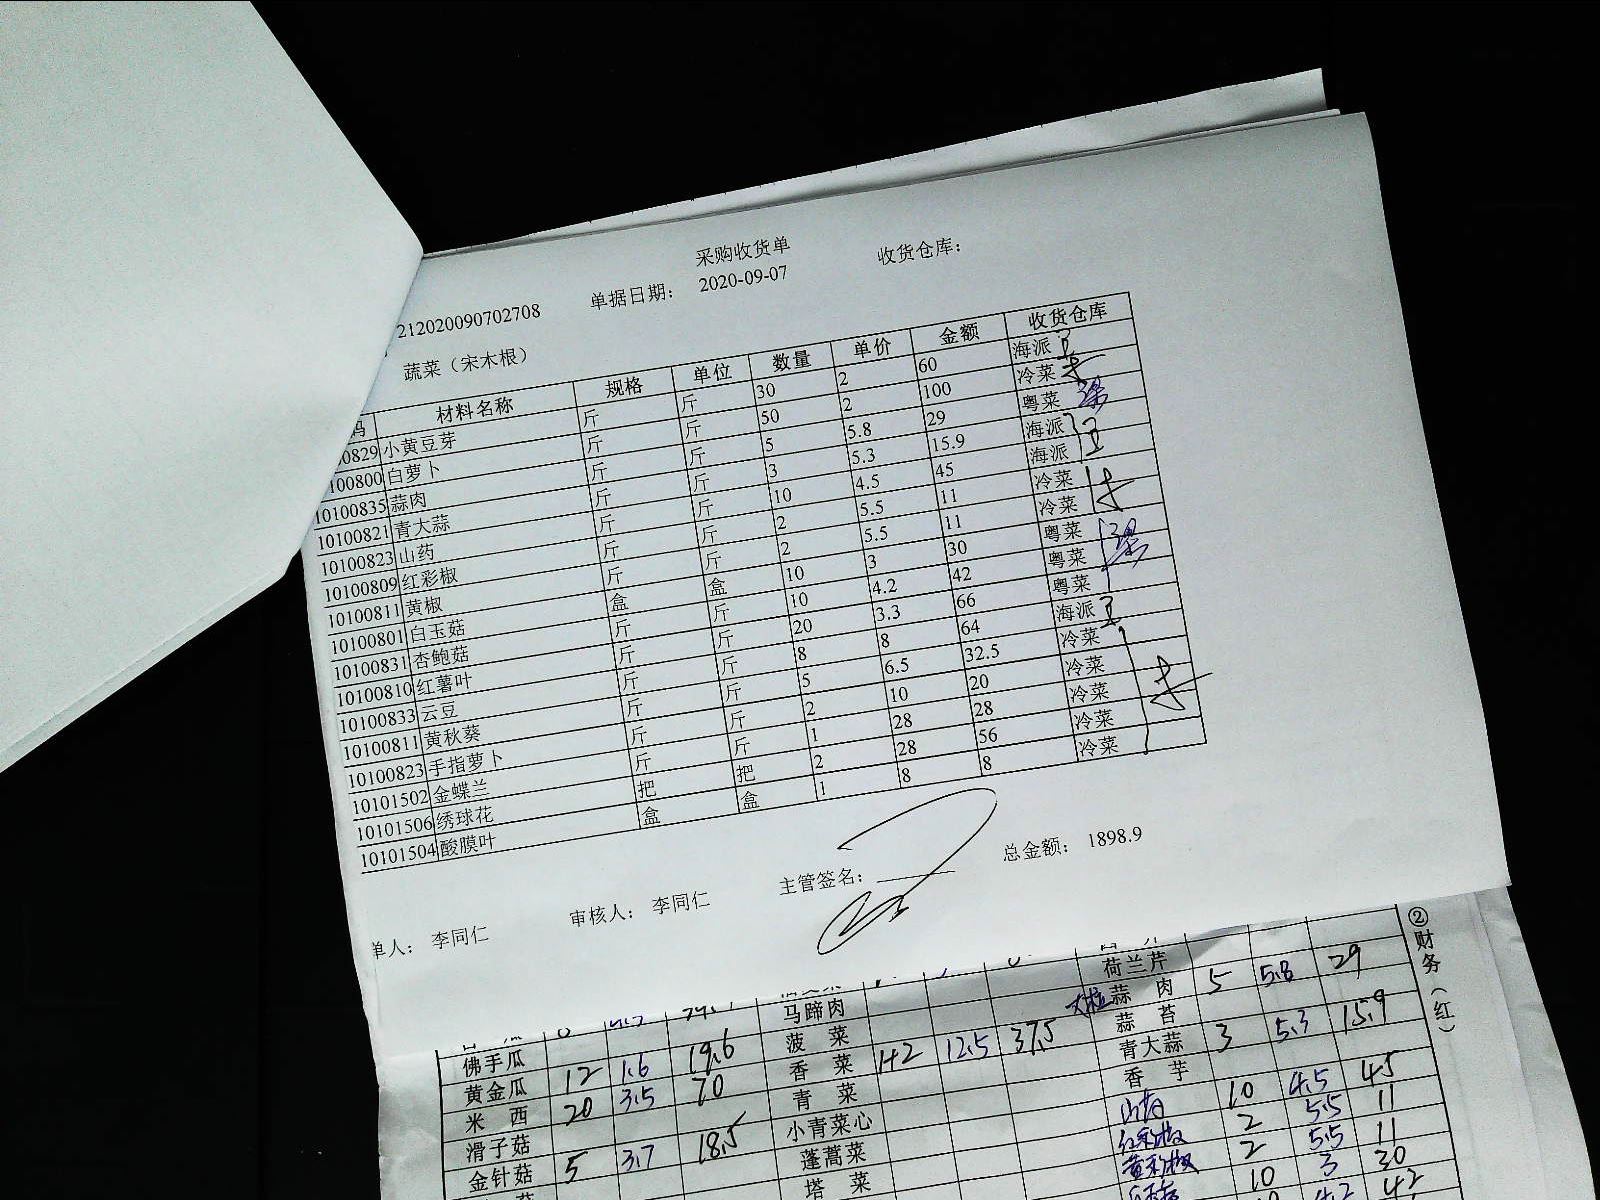 采购收货单
212020090702708 单据日期： 2020-09-07 收货仓库：
蔬菜（宋木根）
码 材料名称 规格 单位 数量 单价 金额 收货仓库
0829 小黄豆芽 斤 斤 30 2 60 海派
100800 白萝卜 斤 斤 50 2 100 冷菜
10100835 蒜肉 斤 斤 5 5.8 29 粤菜
10100821 青大蒜 斤 斤 3 5.3 15.9 海派
10100823 山药 斤 斤 10 4.5 45 海派
10100809 红彩椒 斤 斤 2 5.5 11 冷菜
10100811 黄椒 斤 斤 2 5.5 11 冷菜
10100801 白玉菇 盒 盒 10 3 30 粤菜
10100831 杏鲍菇 斤 斤 10 4.2 42 粤菜
10100810 红薯叶 斤 斤 20 3.3 66 粤菜
10100833 云豆 斤 斤 8 8 64 海派
10100811 黄秋葵 斤 斤 5 6.5 32.5 冷菜
10100823 手指萝卜 斤 斤 2 10 20 冷菜
10101502 金蝶兰 斤 斤 1 28 28 冷菜
10101506 绣球花 把 把 2 28 56 冷菜
10101504 酸膜叶 盒 盒 1 8 8 冷菜
单人： 李同仁 审核人： 李同仁 主管签名： 总金额： 1898.9
②财务（红）
佛手瓜 马蹄肉 荷兰芹
黄金瓜 12 1.6 19.6 菠菜 蒜肉 5 5.8 29
米西 20 3.5 70 香菜 12.5 37.5 蒜苔
滑子菇 青菜 青大蒜 3 5.3 15.9
金针菇 5 3.7 18.5 小青菜心 香芋
蓬蒿菜 山药 10 4.5 45
塔菜 红彩椒 2 5.5 11
黄彩椒 2 5.5 11
10 3 30
4.2 42